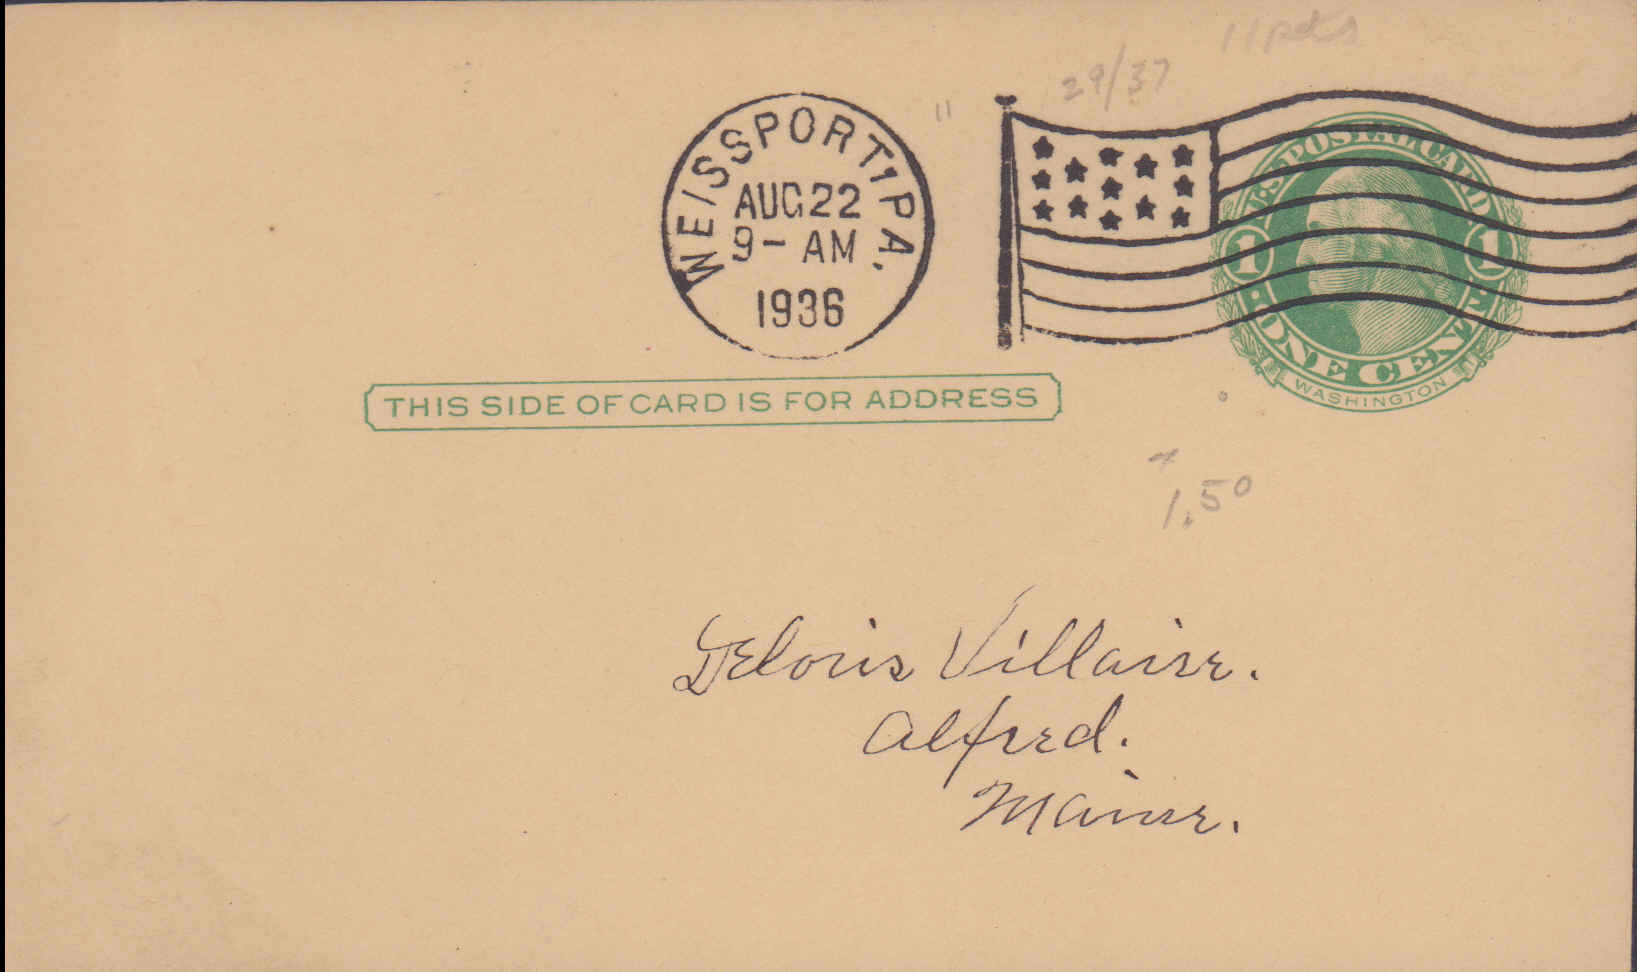 11 pts
29/37
"
WEISSPORT 1 PA.
AUG 22
9 - AM
1936
U.S. POSTAL CARD
1 1
ONE CENT
WASHINGTON
THIS SIDE OF CARD IS FOR ADDRESS
1.50
Deloris Villaire.
Alfred.
Maine.